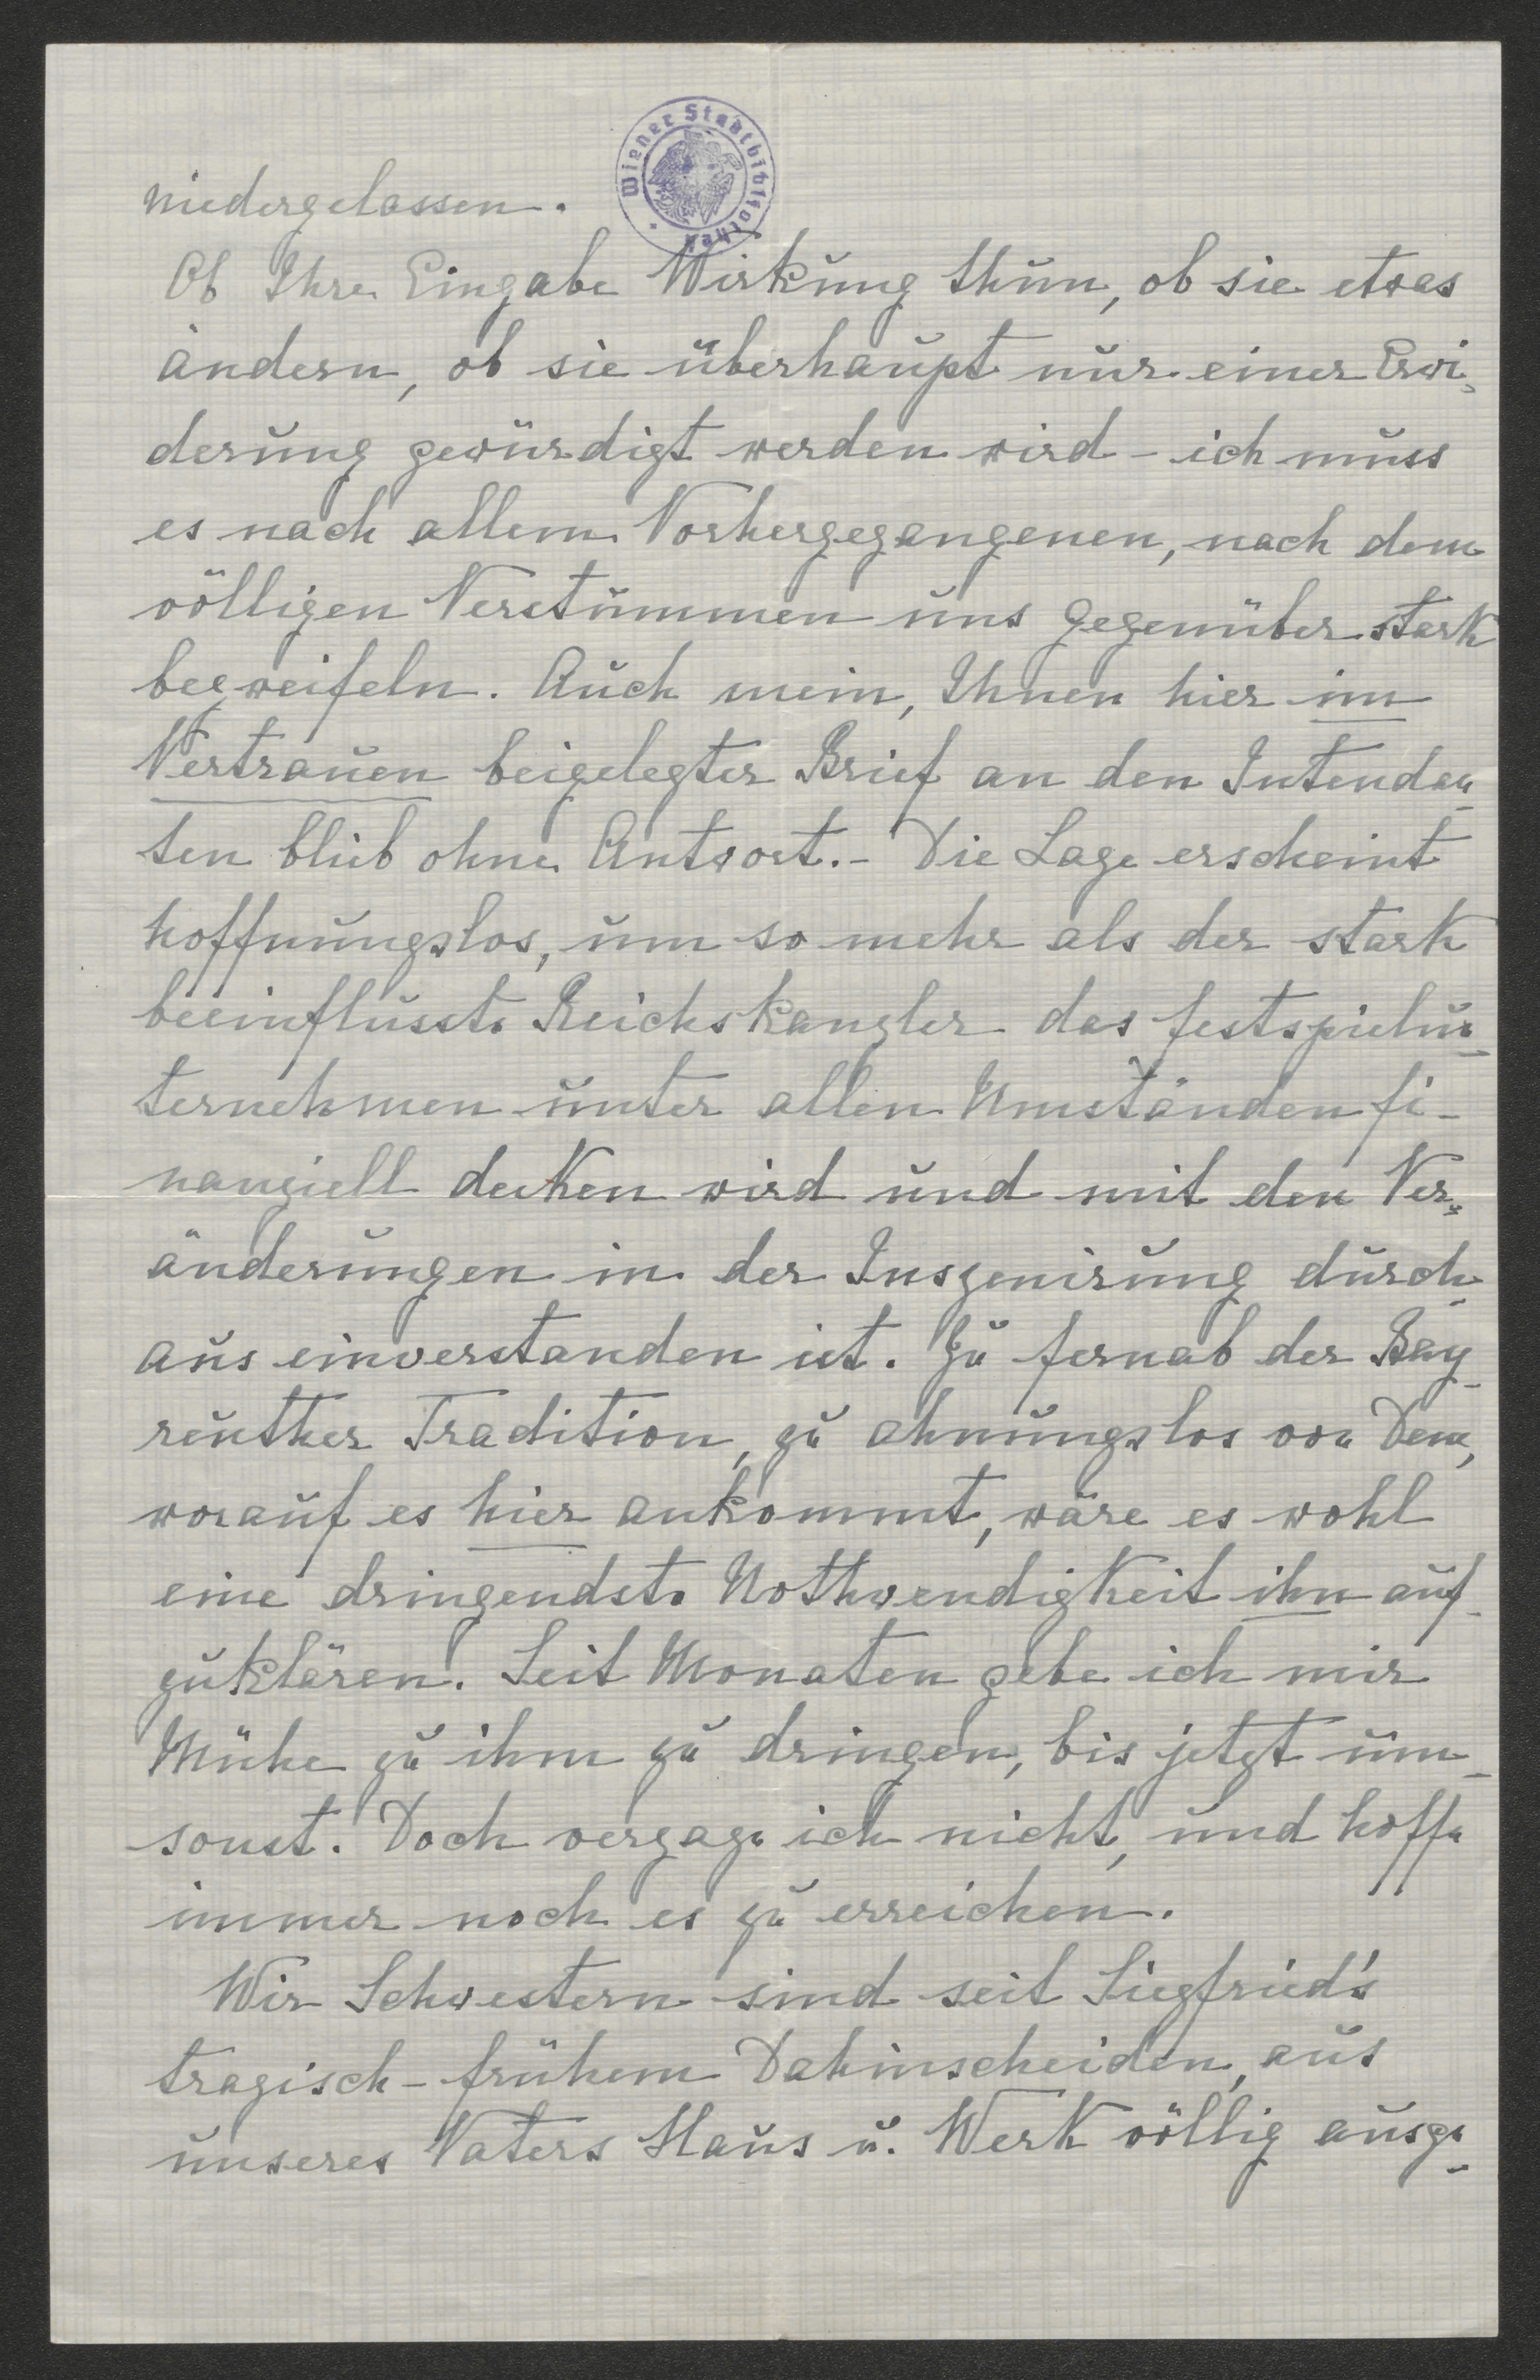 Wiener Stadtbibliothek
niedergelassen.
Ob Ihre Eingabe Wirkung thun, ob sie etwas
ändern, ob sie überhaupt nur einer Erwi-
derung gewürdigt werden wird - ich muss
es nach allem Vorhergegangenen, nach dem
völligen Verstummen uns gegenüber stark
bezweifeln. Auch mein, Ihnen hier im
Vertrauen beigelegter Brief an den Intendan-
ten blieb ohne Antwort. - Die Lage erscheint
hoffnungslos, um so mehr als der stark
beeinflusste Reichskanzler das Festspielun-
ternehmen unter allen Umständen fi-
nanziell decken wird und mit den Ver-
änderungen in der Inszenirung durch-
aus einverstanden ist. Zu fernab der Bay-
reuther Tradition, zu ahnungslos von Dem,
worauf es hier ankommt, wäre es wohl
eine dringendste Nothwendigkeit ihn auf-
zuklären. Seit Monaten gebe ich mir
Mühe zu ihm zu dringen, bis jetzt um-
sonst. Doch verzage ich nicht, und hoffe
immer noch es zu erreichen.
Wir Schwestern sind seit Siegfried's
tragisch-frühem Dahinscheiden, aus
unseres Vaters Haus u. Werk völlig ausge-